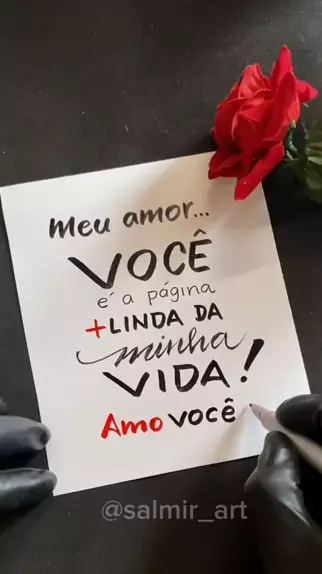 Meu amor...
VOCÊ
é a página
+LINDA DA
minha
VIDA!
Amo você
@salmir_art